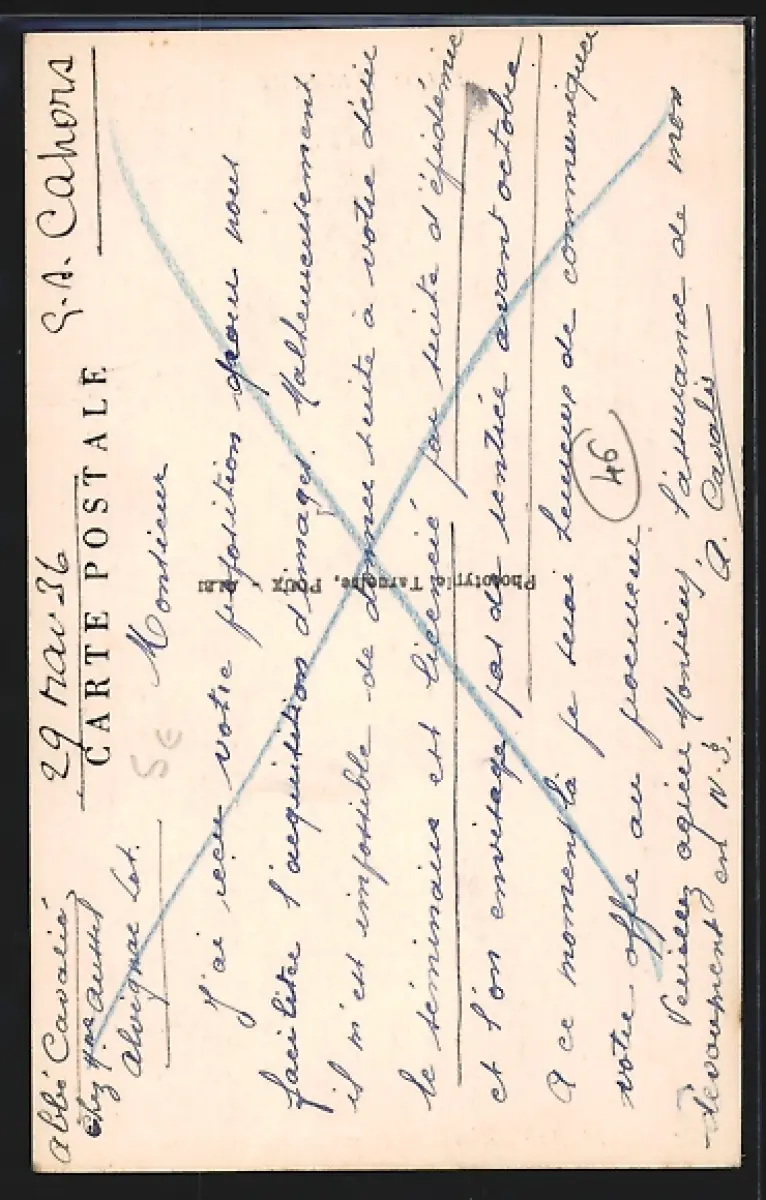 Abbé Cavalié
chez Mme Aussel
Alvignac Lot.
29 Mai 36
G.S. Cahors
CARTE POSTALE
5€
Monsieur
J'ai reçu votre proposition pour nous
faciliter l'acquisition d'images. Malheureusement
il m'est impossible de donner suite à votre désir
le séminaire est licencié par suite d'épidémie
et l'on envisage pas de rentrée avant octobre
A ce moment là je serai heureux de communiquer
votre offre au
Veuillez agréer Monsieur, l'assurance de mon
dévouement en N.S.
A. Cavalié
46
Phototypie Tarnaise, Poux - Albi